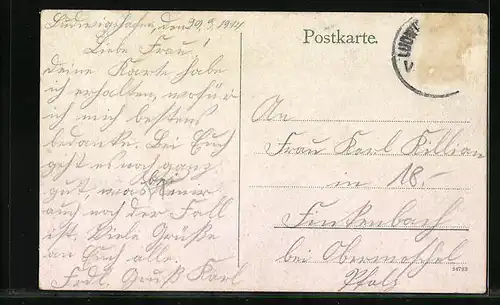 Ludwigshafen, den 20.9.1914
Liebe Frau!
deine Karte habe
ich erhalten, wofür
ich mich bestens
bedanke. Bei Euch
geht es noch ganz
gut, was bei
auch noch der Fall
ist. Viele Grüße
an Euch alle.
Frdl. Gruß Karl
Postkarte.
LUDW
An
Frau Karl Killian
in 18.-
Finkenbach
bei Obermoschel
Pfalz